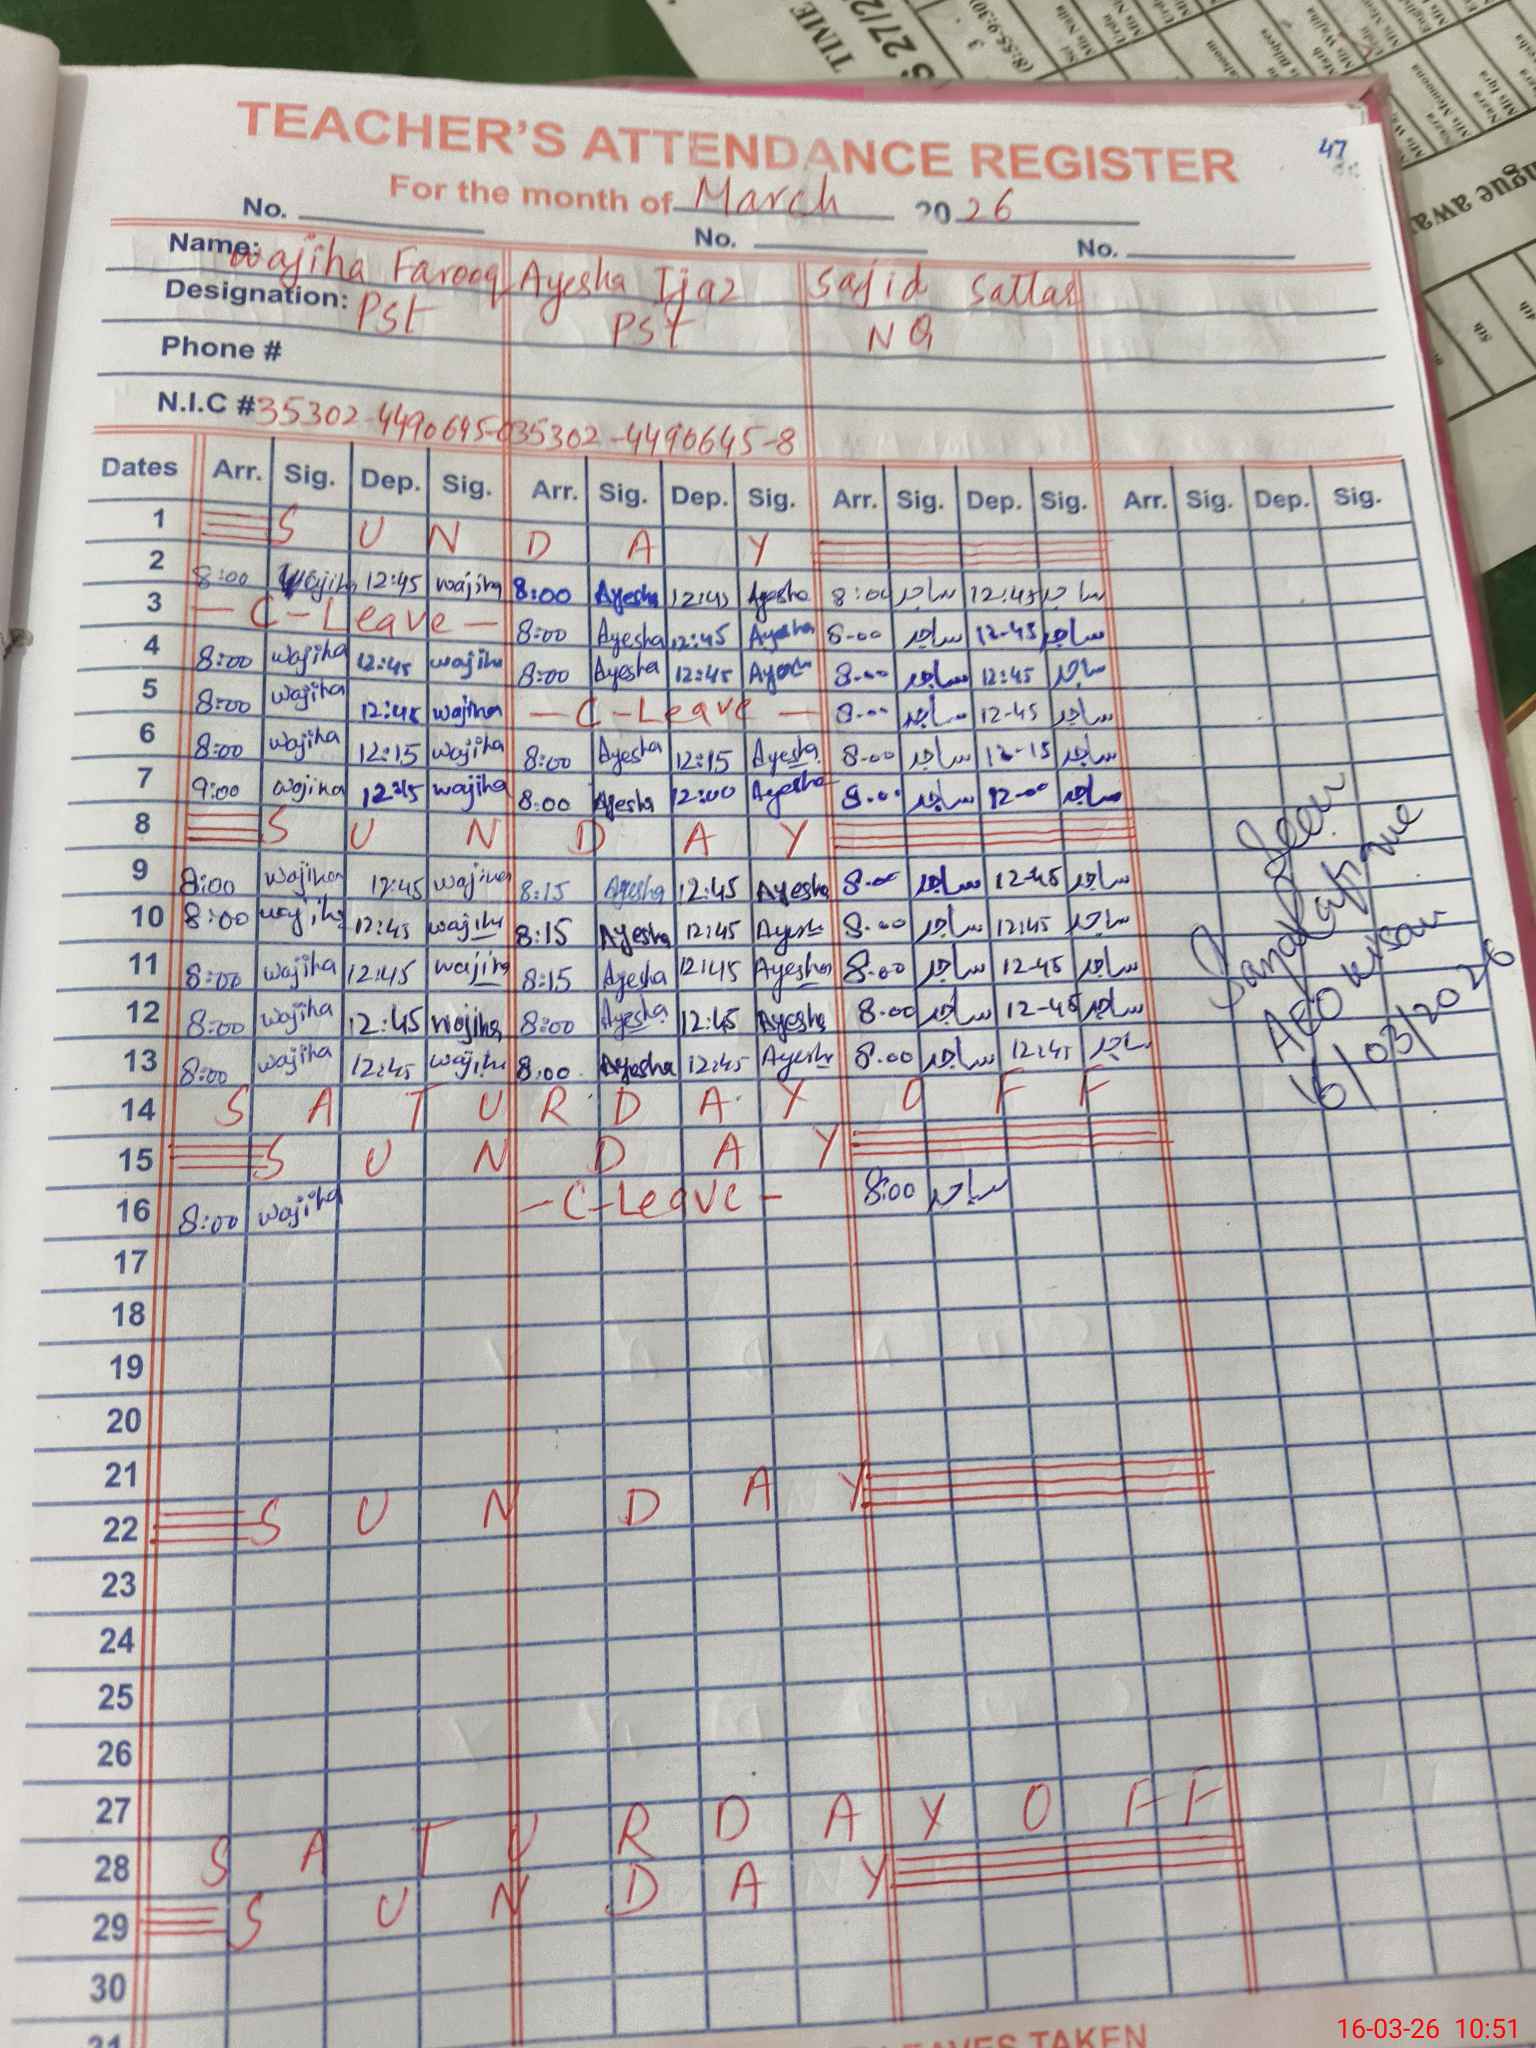 TIME
27/2
(8:55-9:30)
47
TEACHER'S ATTENDANCE REGISTER
For the month of March 2026
No. No. No.
Name: Wajiha Farooq Ayesha Ijaz Sajid Sattar
Designation: PST PST NQ
Phone #
N.I.C # 35302-4490645- 35302-4490645-8
Dates Arr. Sig. Dep. Sig. Arr. Sig. Dep. Sig. Arr. Sig. Dep. Sig. Arr. Sig. Dep. Sig.
1 S U N D A Y
2 8:00 Wajiha 12:45 wajiha 8:00 Ayesha 12:45 Ayesha 8:00 ساجد 12:45 ساجد
3 - C-Leave - 8:00 Ayesha 12:45 Ayesha 8-00 ساجد 12-45 ساجد
4 8:00 wajiha 12:45 wajiha 8:00 Ayesha 12:45 Ayesha 8-00 ساجد 12:45 ساجد
5 8:00 wajiha 12:45 wajiha - C-Leave - 8-00 ساجد 12-45 ساجد
6 8:00 wajiha 12:15 wajiha 8:00 Ayesha 12:15 Ayesha 8-00 ساجد 12-15 ساجد
7 9:00 wajiha wajiha 8:00 Ayesha 12:00 Ayesha 8-00 ساجد 12-00 ساجد
8 S U N D A Y
9 8:00 wajiha 12:45 wajiha 8:15 Ayesha 12:45 Ayesha 8-00 ساجد 12-45 ساجد
10 8:00 wajiha 12:45 wajiha 8:15 Ayesha 12:45 Ayesha 8-00 ساجد 12:45 ساجد
11 8:00 wajiha 12:45 wajiha 8:15 Ayesha 12:45 Ayesha 8-00 ساجد 12-45 ساجد
12 8:00 wajiha 12:45 wajiha 8:00 Ayesha 12:45 Ayesha 8-00 ساجد 12-45 ساجد
13 8:00 wajiha 12:45 wajiha 8:00 Ayesha 12:45 Ayesha 8-00 ساجد 12:45 ساجد
Seen
AEO
16/03/2026
14 S A T U R D A Y O F F
15 S U N D A Y
16 8:00 wajiha - C-Leave - 8:00 ساجد
17
18
19
20
21
22 S U N D A Y
23
24
25
26
27
28 S A T U R D A Y O F F
29 S U N D A Y
30
31
LEAVES TAKEN
16-03-26 10:51